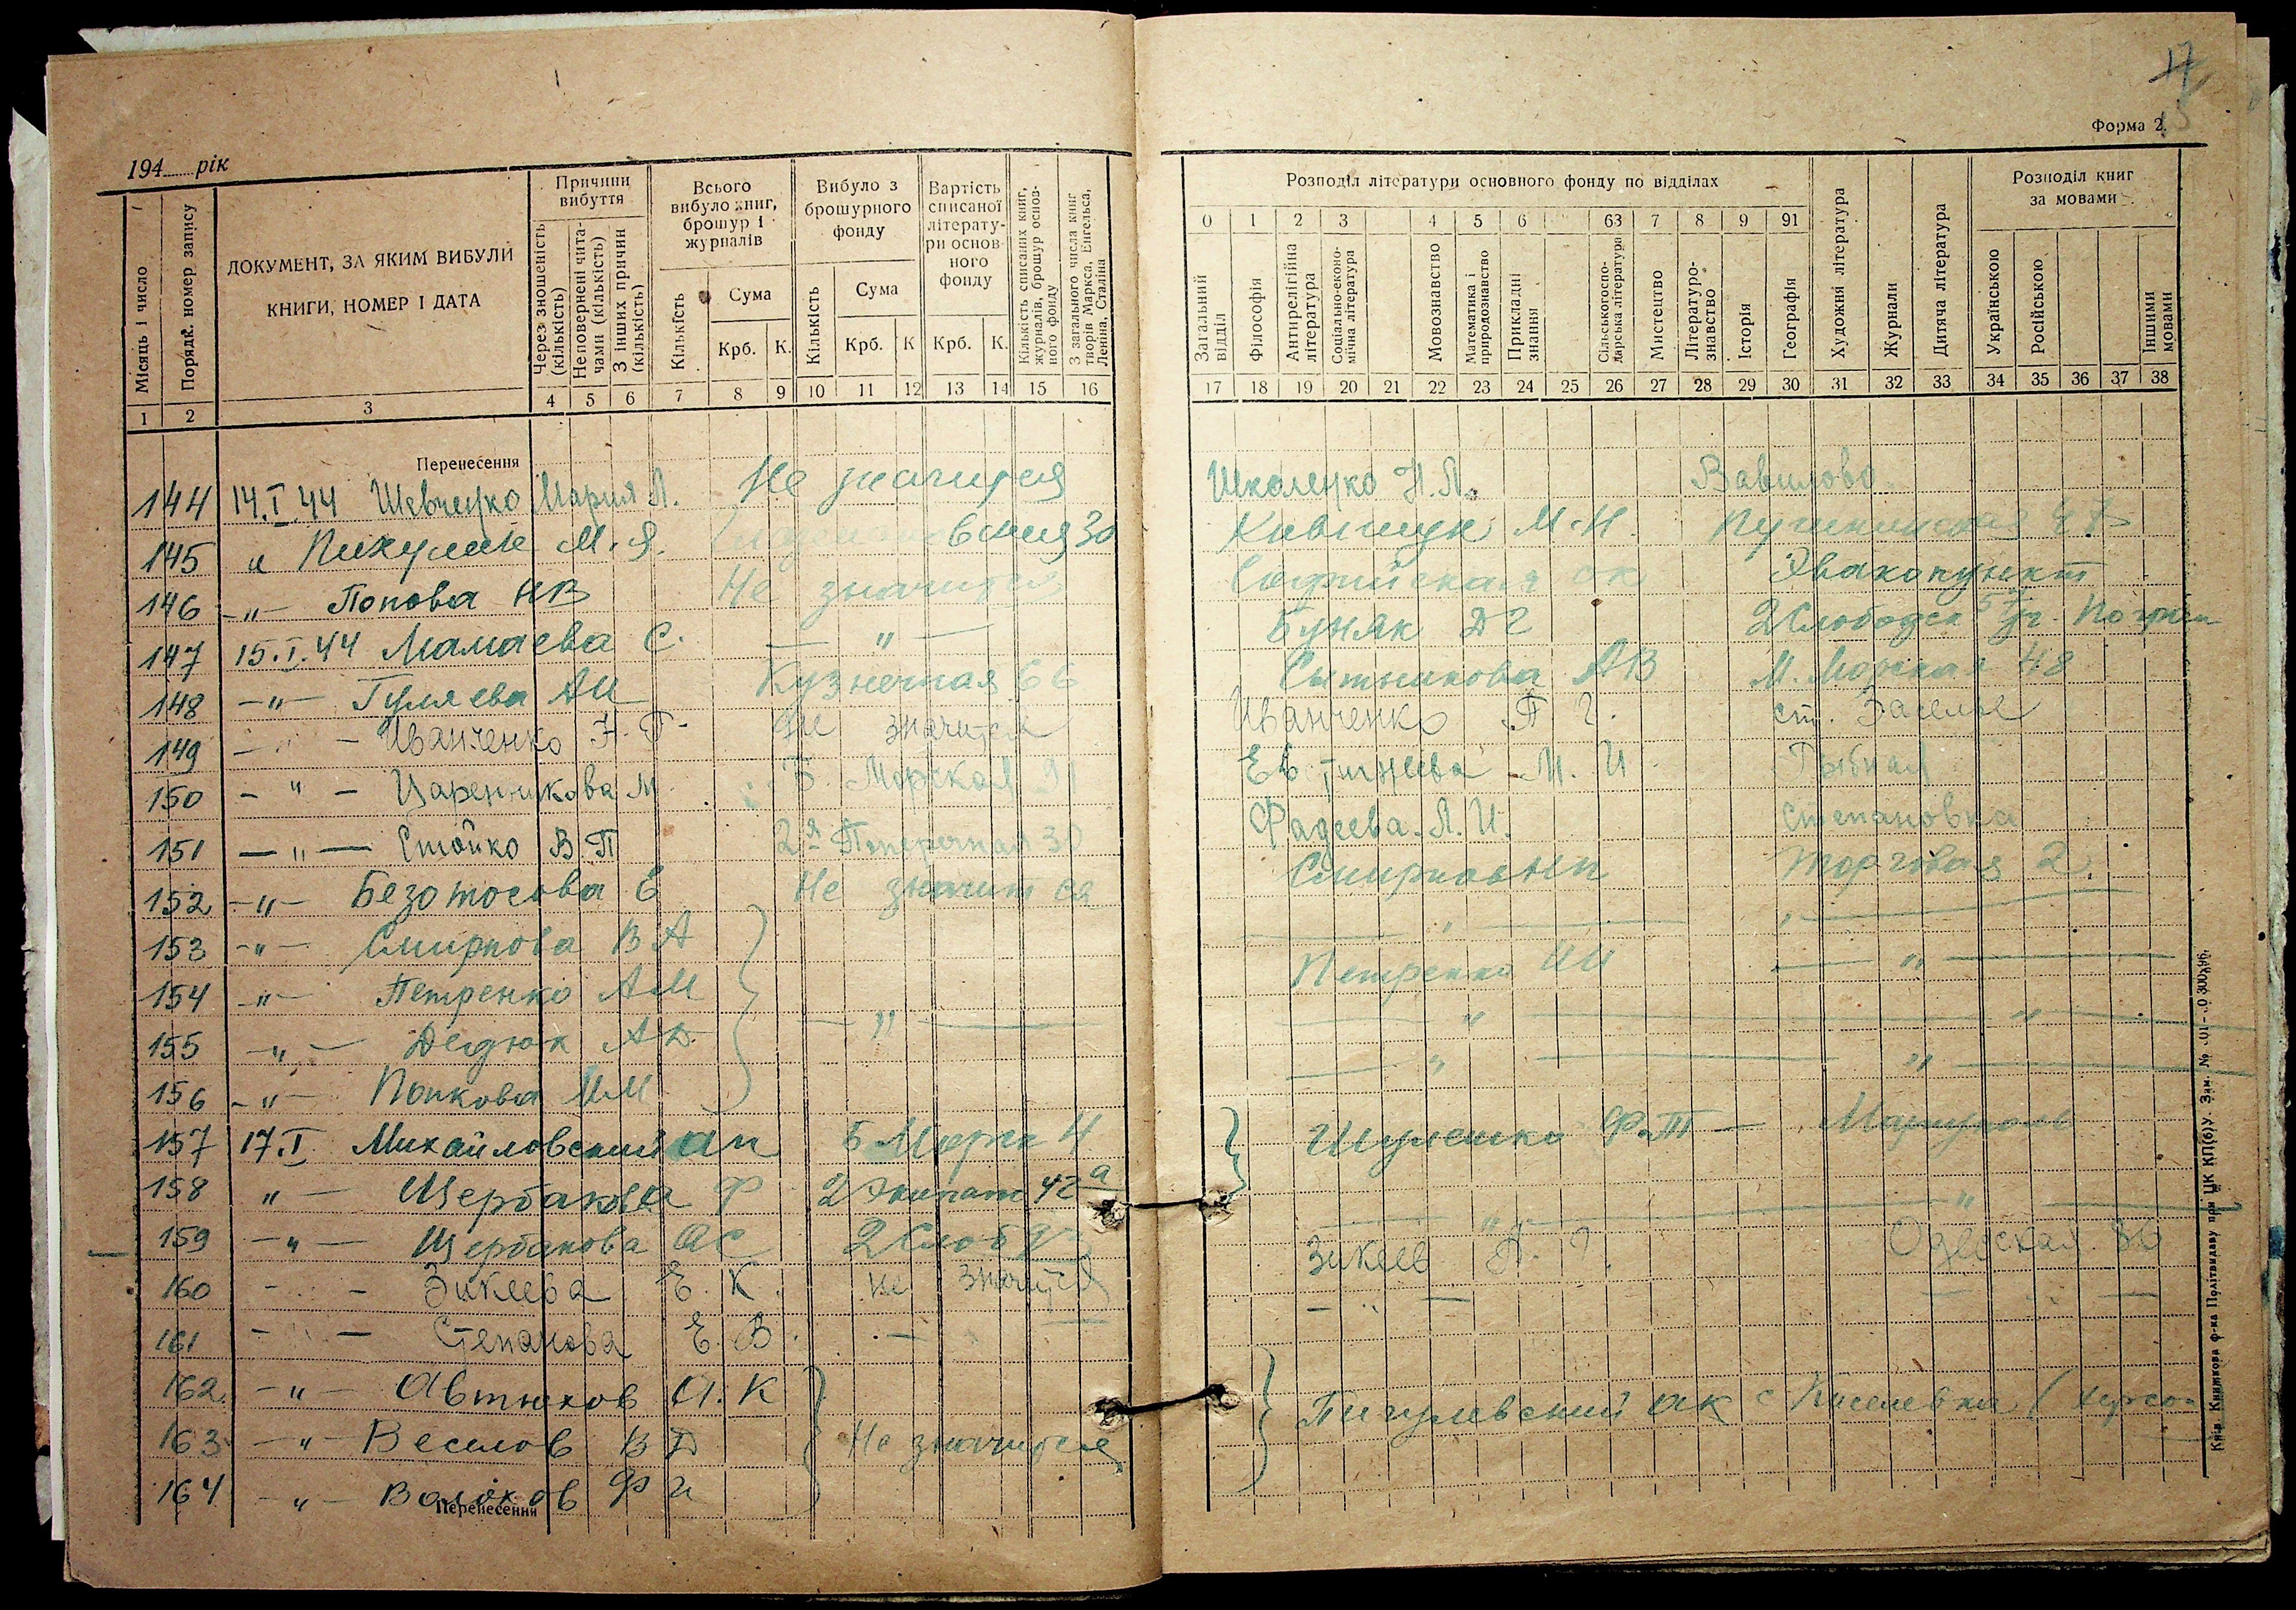 17
Форма 2.
194 рік
Місяць і число
Порядк. номер запису
ДОКУМЕНТ, ЗА ЯКИМ ВИБУЛИ
КНИГИ, НОМЕР І ДАТА
Причини
вибуття
Через зношеність
(кількість)
Неповернені чита-
чами (кількість)
З інших причин
(кількість)
Всього
вибуло книг,
брошур і
журналів
Кількість
Сума
Крб. К.
Вибуло з
брошурного
фонду
Кількість
Сума
Крб. К
Вартість
списаної
літерату-
ри основ-
ного
фонду
Крб. К.
Кількість списаних книг,
журналів, брошур основ-
ного фонду
З загального числа книг
творів Маркса, Енгельса,
Леніна, Сталіна
1 2 3 4 5 6 7 8 9 10 11 12 13 14 15 16
Розподіл літератури основного фонду по відділах
0 1 2 3 4 5 6 63 7 8 9 91
Загальний
відділ
Філософія
Антирелігійна
література
Соціально-еконо-
мічна література
Мовознавство
Математика і
природознавство
Прикладні
знання
Сільськогоспо-
дарська література
Мистецтво
Літературо-
знавство
Історія
Географія
Художня література
Журнали
Дитяча література
Розподіл книг
за мовами
Українською
Російською
Іншими
мовами
17 18 19 20 21 22 23 24 25 26 27 28 29 30 31 32 33 34 35 36 37 38
Перенесення
144 14.I.44 Шевченко Мария Л. Не значится Школенко Н.Л. Вавилово
145 " М.Я. 30 М.Н.
146 -"- Попова НВ Не значится Софийская ОК Эвакопункт
147 15.I.44 Мамаева С. — " — Буняк ДГ 2 Слободск
148 -"- Гуляева АИ Кузнечная 66 Сытникова АВ М. Морская 48
149 - " - Иванченко Не значится Иванченко П Г. ст. Заселье
150 - " - М. Б. Морская 91 Евтигнеева М. И. Рыбная
151 — " — Стойко В.П 2я Поперечная 30 Фадеева Л.И. Степановка
152 -"- Безотосова Е Не значится Торговая 2.
153 -"- Смирнова ВА " "
154 -"- Петренко АМ Петренко ИИ — " —
155 -"- Дедюк АД. — " — " "
156 -"- Попкова ИМ " "
157 17.I. Михайловский АП Б Морск 4 Шулешко Ф.Т — Мариуполь
158 " — Щербакова Ф 2 Экипаж 42а " "
159 -"- Щербакова АС 2 Слоб Зикеев Одесская 36
160 - " - Зикеева Е. К. не значится — " — — " —
161 - " - Степанова Е. В. — " —
162 -"- Автюхов А. К
163 -"- Веселов В Д Не значится Пигулевский АК с Киселевка (Херсон
164 -"- Волохов Ф И
Перенесення
Київ Книжкова ф-ка Політвидаву при ЦК КП(б)У. Зам. №